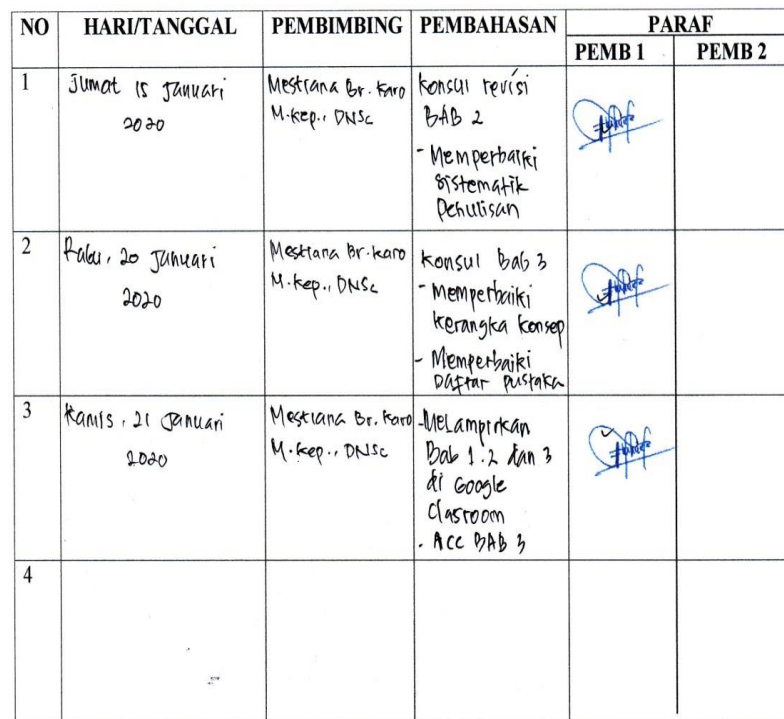 NO HARI/TANGGAL PEMBIMBING PEMBAHASAN PARAF
PEMB 1 PEMB 2
1
Jumat 15 Januari
2020
Mestiana Br. Karo
M.kep., DNSc
konsul revisi
BAB 2
- Memperbaiki
sistematik
Penulisan
2
Rabu, 20 Januari
2020
Mestiana Br. karo
M.kep., DNSc
Konsul Bab 3
- Memperbaiki
kerangka konsep
- Memperbaiki
Daftar pustaka
3
Kamis, 21 Januari
2020
Mestiana Br. Karo
M.kep., DNSc
- Melampirkan
Bab 1.2 dan 3
di Google
Clasroom
- ACC BAB 3
4